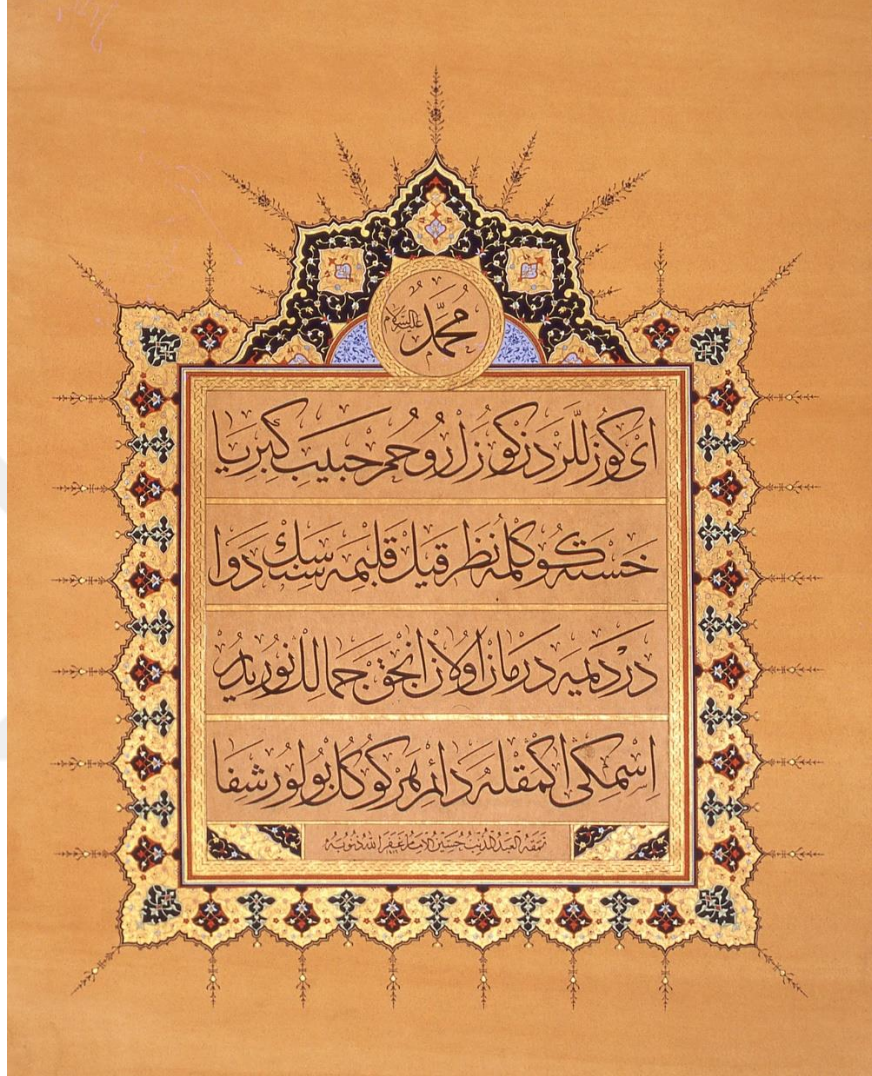 محمد عليه السلام
اى كوزللردن كوزل روحم حبيب كبريا
خسته كوكلمه نظر قيل قلبيمه سنسك دوا
درديمه درمان اولان انجق جمالك نوريدر
اسمكى اكمقله دائم هر كوكل بولور شفا
نمقه العبد المذنب حسين الامام غفر الله ذنوبه